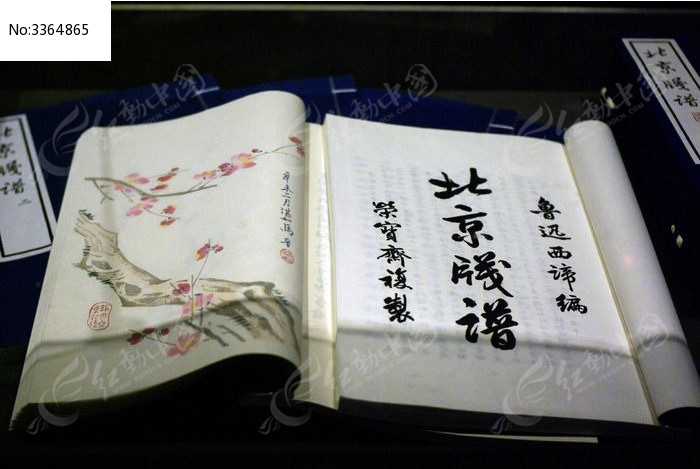 No:3364865
北京牋譜
魯迅西諦編
北京牋譜
榮寶齋複製
北京牋譜二
红動中国